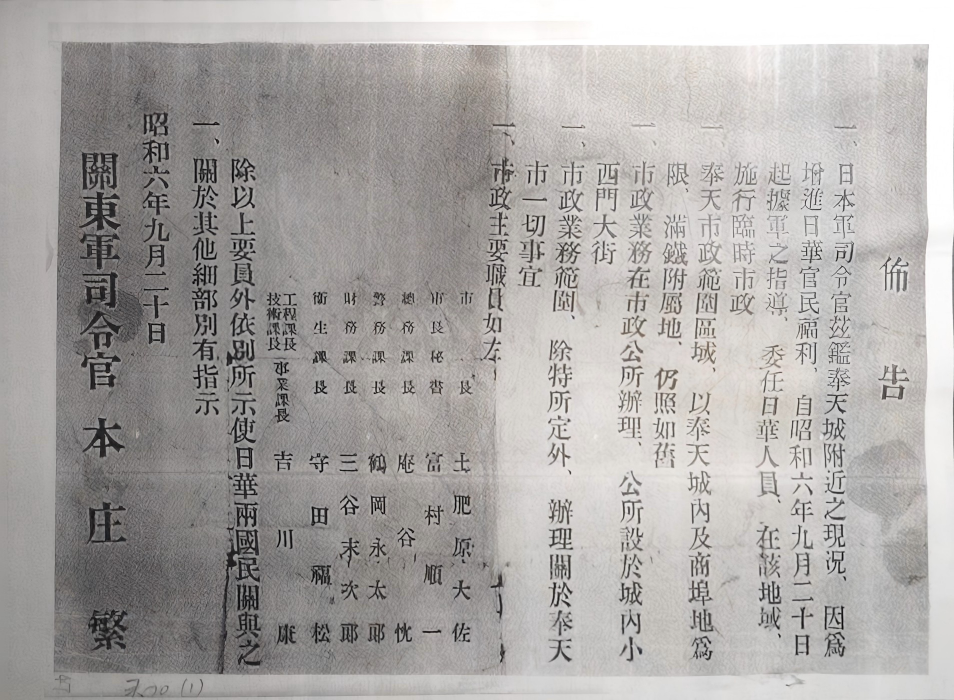 佈告
一、日本軍司令官茲鑑奉天城附近之現況、因爲
增進日華官民福利、自昭和六年九月二十日
起據軍之指導、委任日華人員、在該地域、
施行臨時市政
一、奉天市政範圍區域、以奉天城內及商埠地爲
限、滿鐵附屬地、仍照如舊
一、市政業務在市政公所辦理、公所設於城內小
西門大街
一、市政業務範圍、除特所定外、辦理關於奉天
市一切事宜
一、市政主要職員如左、
市長 土肥原大佐
市長秘書 富村順一
總務課長 庵谷忱
警務課長 鶴岡永太郎
財務課長 三谷末次郎
衛生課長 守田福松
工程課長 技術課長 事業課長 吉川康
除以上要員外依別所示使日華兩國民關與之
一、關於其他細部別有指示
昭和六年九月二十日
關東軍司令官 本庄繁
(1)